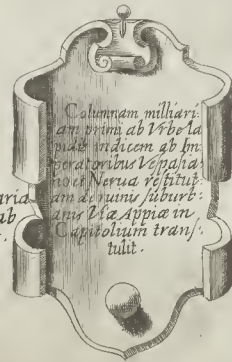 Columnam milliari:
am primi ab Vrbe la
pidis indicem ab Im
peratoribus Vespasia:
no et Nerua restitut:
am de ruinis suburb:
anis Viæ Appiæ in
Capitolium trans:
tulit.
aria
ab